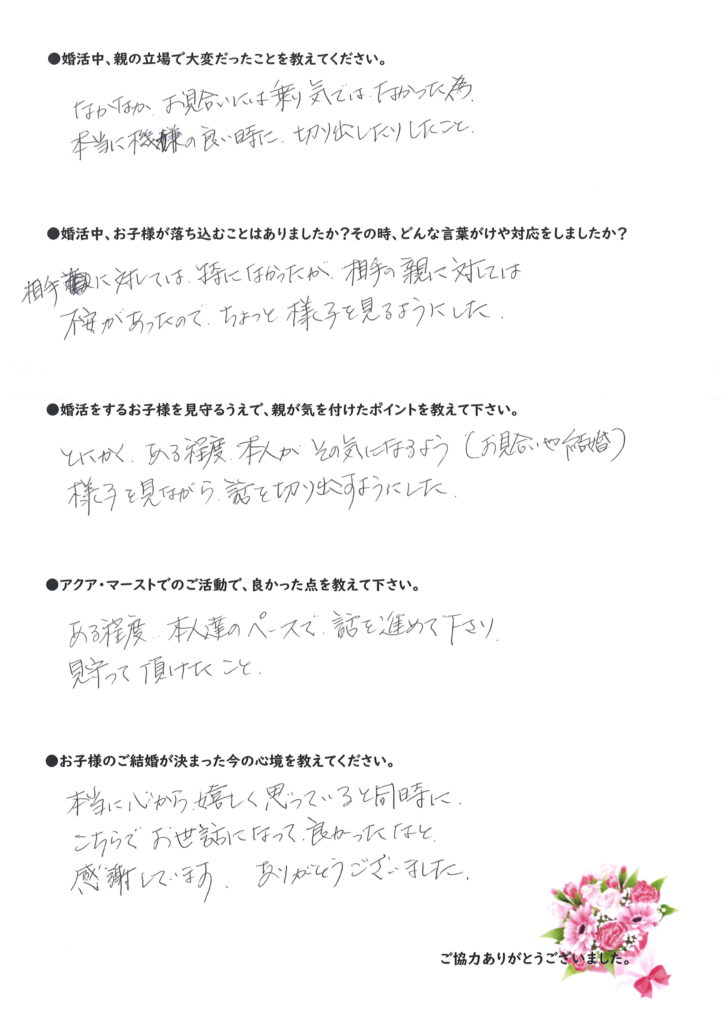 ●婚活中、親の立場で大変だったことを教えてください。
なかなか、お見合いには乗り気ではなかった為、
本当に機嫌の良い時に、切り出したりしたこと。
●婚活中、お子様が落ち込むことはありましたか?その時、どんな言葉がけや対応をしましたか?
相手に対しては、特になかったが、相手の親に対しては
不安があったので、ちょっと様子を見るようにした。
●婚活をするお子様を見守るうえで、親が気を付けたポイントを教えて下さい。
とにかく、ある程度、本人がその気になるよう(お見合いや結婚)
様子を見ながら、話を切り出すようにした。
●アクア・マーストでのご活動で、良かった点を教えて下さい。
ある程度、本人達のペースで、話を進めて下さり、
見守って頂けたこと。
●お子様のご結婚が決まった今の心境を教えてください。
本当に心から、嬉しく思っていると同時に、
こちらでお世話になって、良かったなと、
感謝しています。ありがとうございました。
ご協力ありがとうございました。